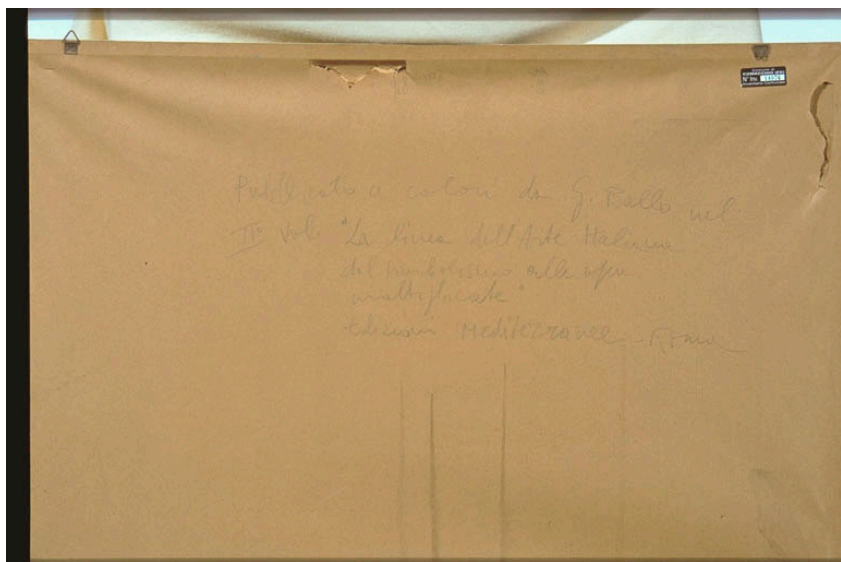 Pubblicato a colori da G. Ballo nel
II° vol. "La linea dell'Arte Italiana
dal simbolismo alle opere
moltiplicate"
edizioni Mediterranee - Roma
N° INV.